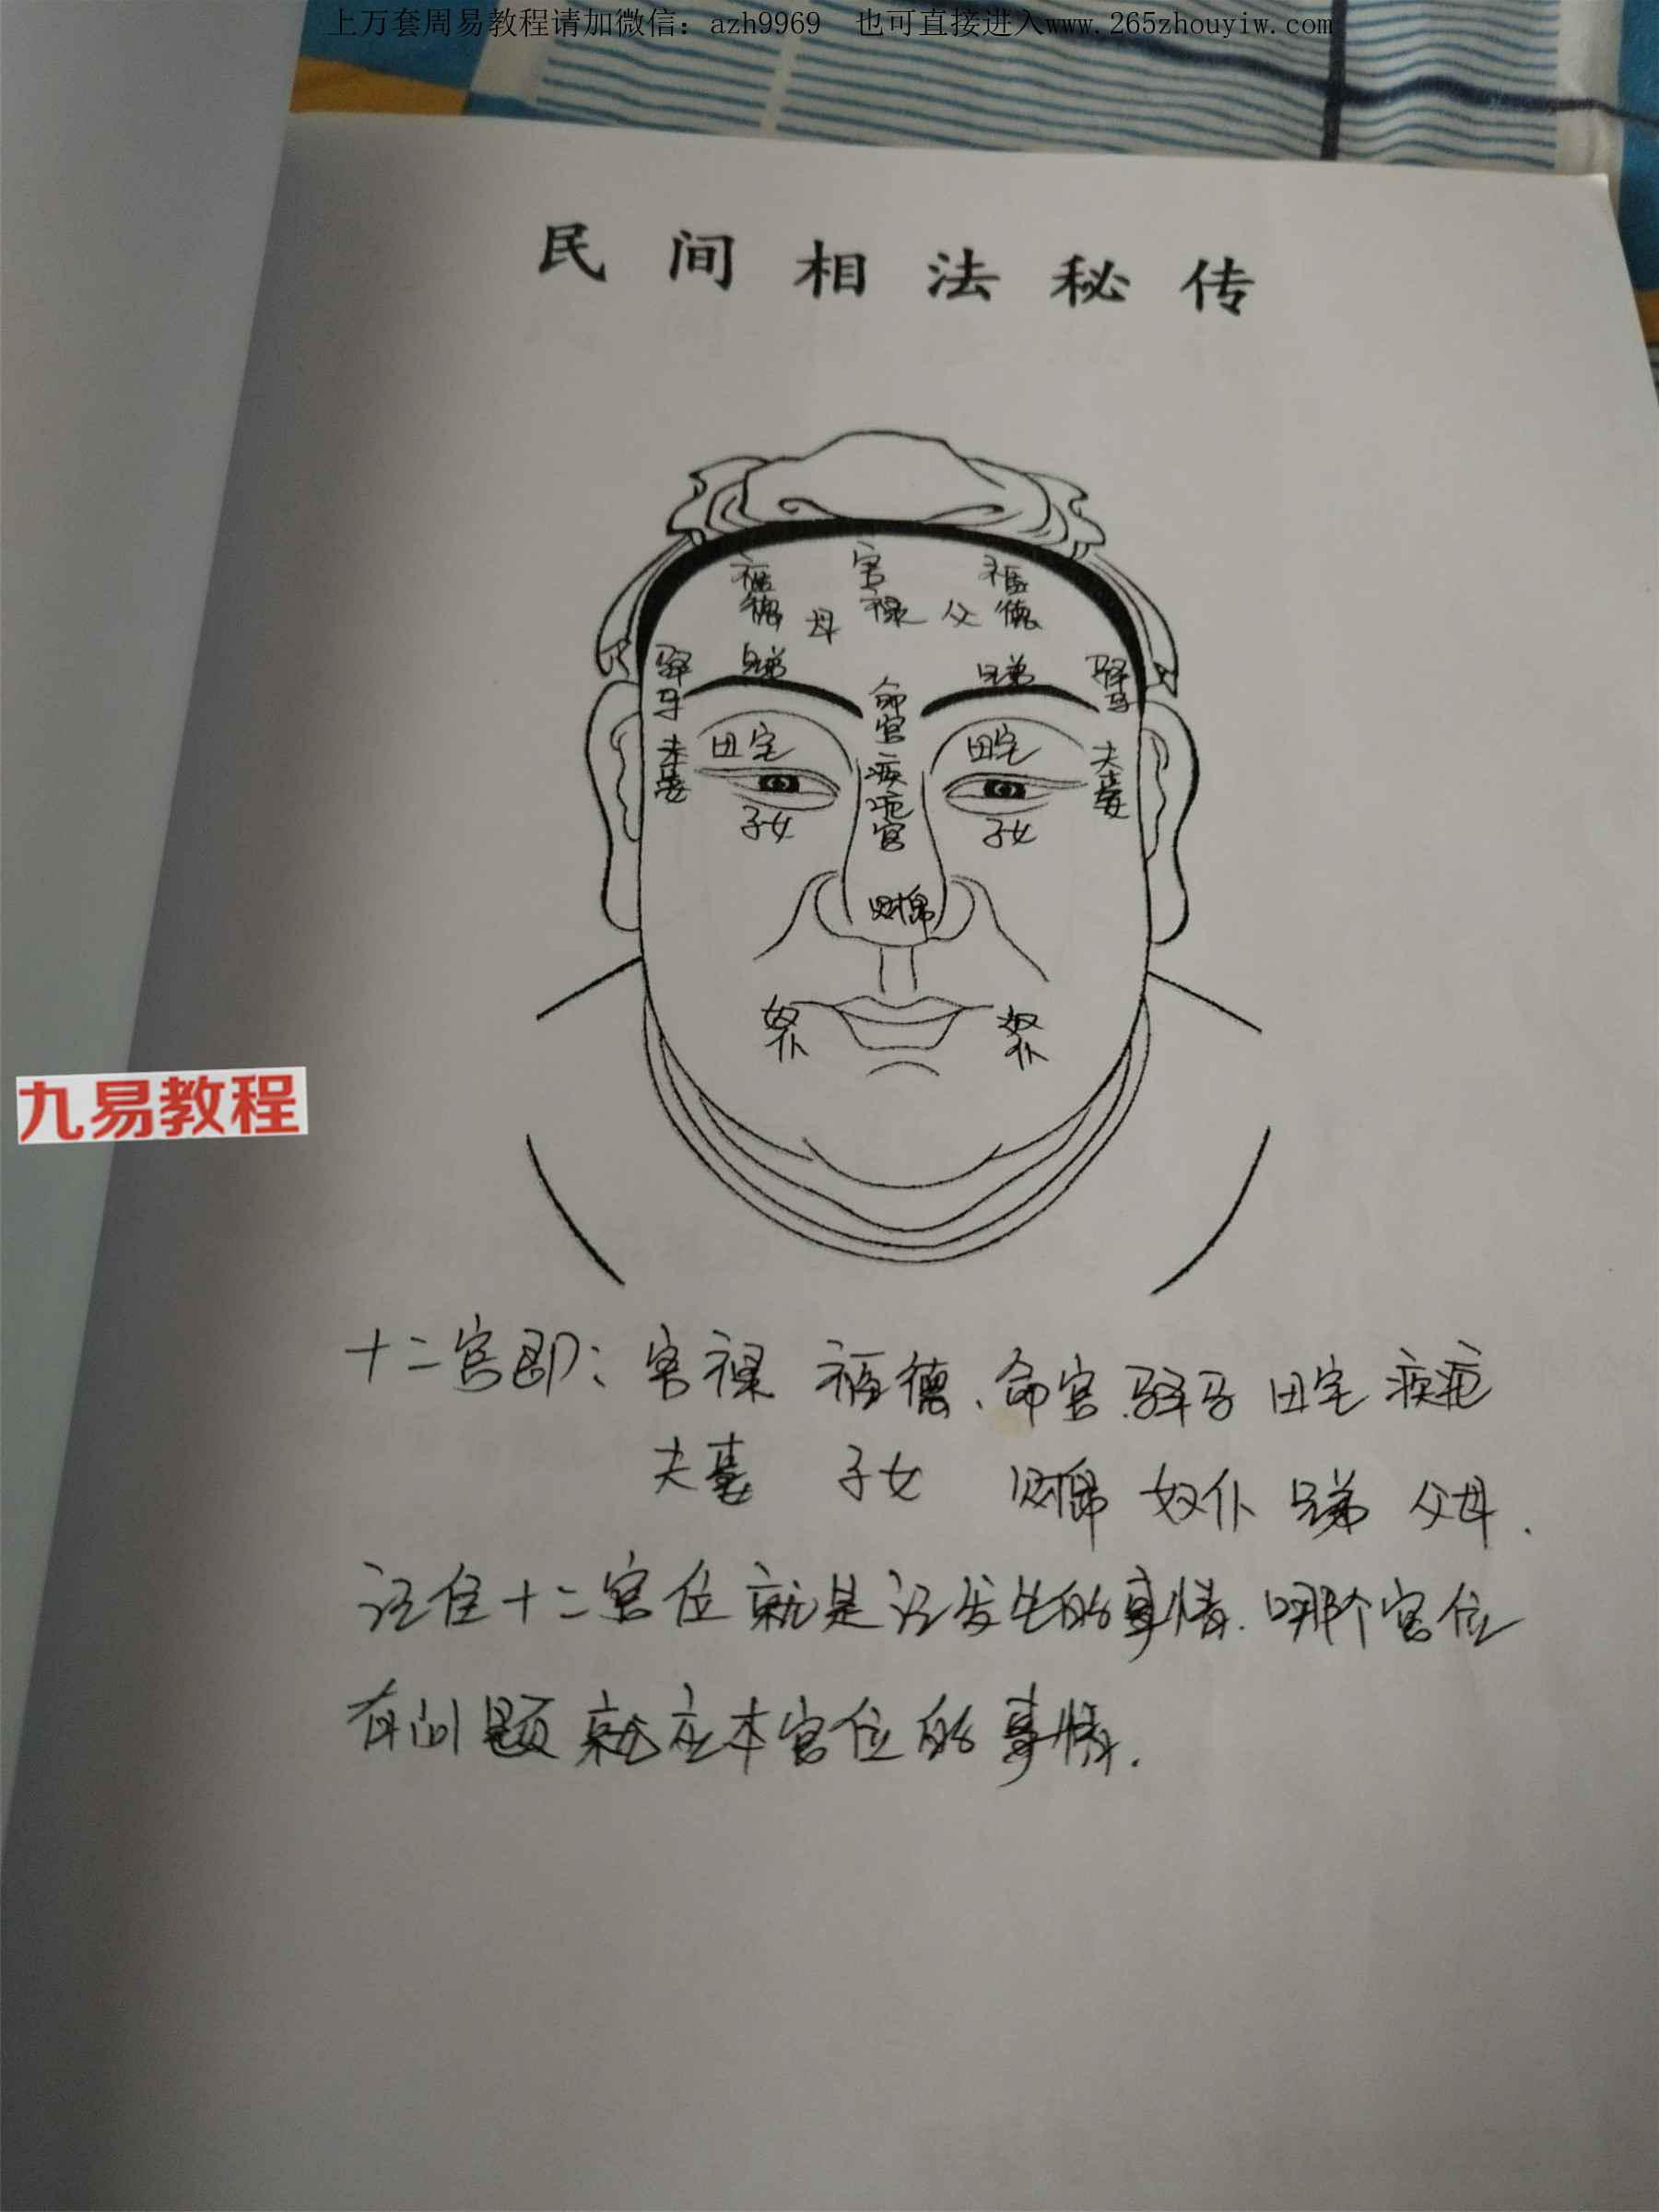 上万套周易教程请加微信：azh9969 也可直接进入www.265zhouyiw.com
民间相法秘传
福德 官禄 福德
母 父
驿马 兄弟 兄弟 驿马
命宫
夫妻 田宅 田宅 夫妻
疾疤宫
子女 子女
财帛
奴仆 奴仆
九易教程
十二宫即：官禄 福德、命宫、驿马 田宅 疾疤
夫妻 子女 财帛 奴仆 兄弟 父母.
记住十二宫位就是记发生的事情.哪个宫位
有问题就应本宫位的事情.